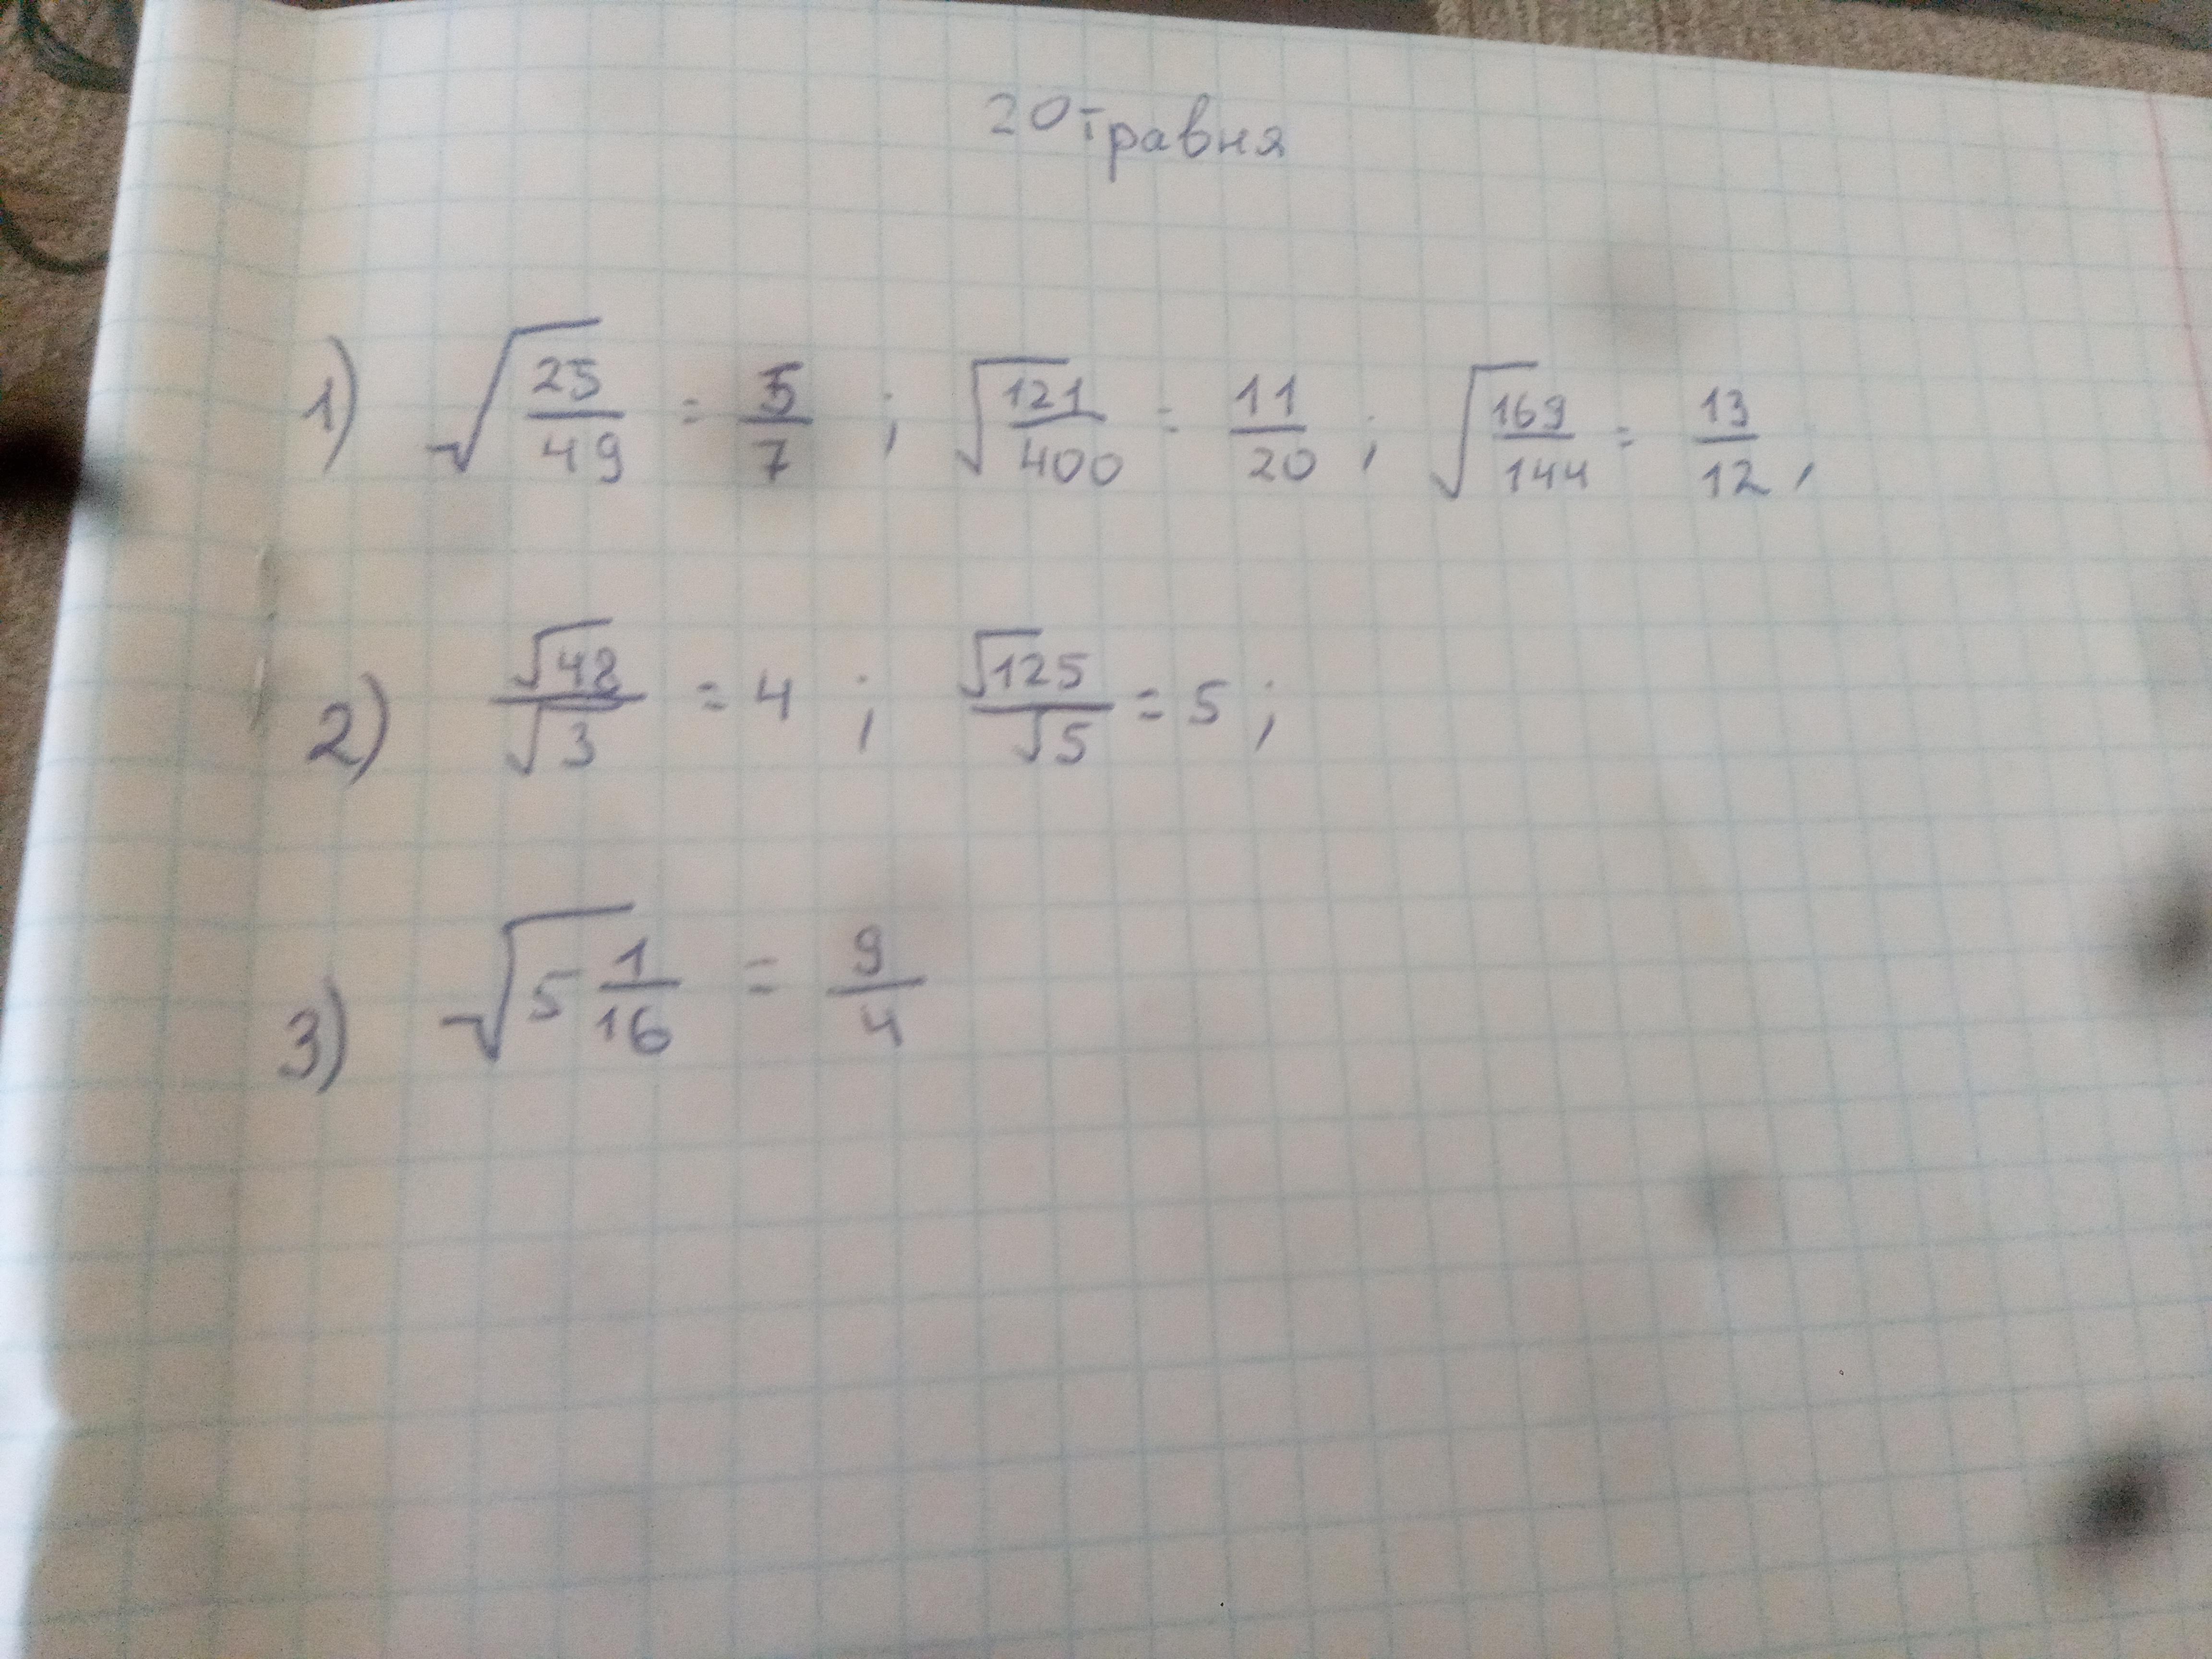 20 травня
1) √25/49 = 5/7 ; √121/400 = 11/20 ; √169/144 = 13/12 ,
2) √48/√3 = 4 ; √125/√5 = 5 ;
3) √5 1/16 = 9/4